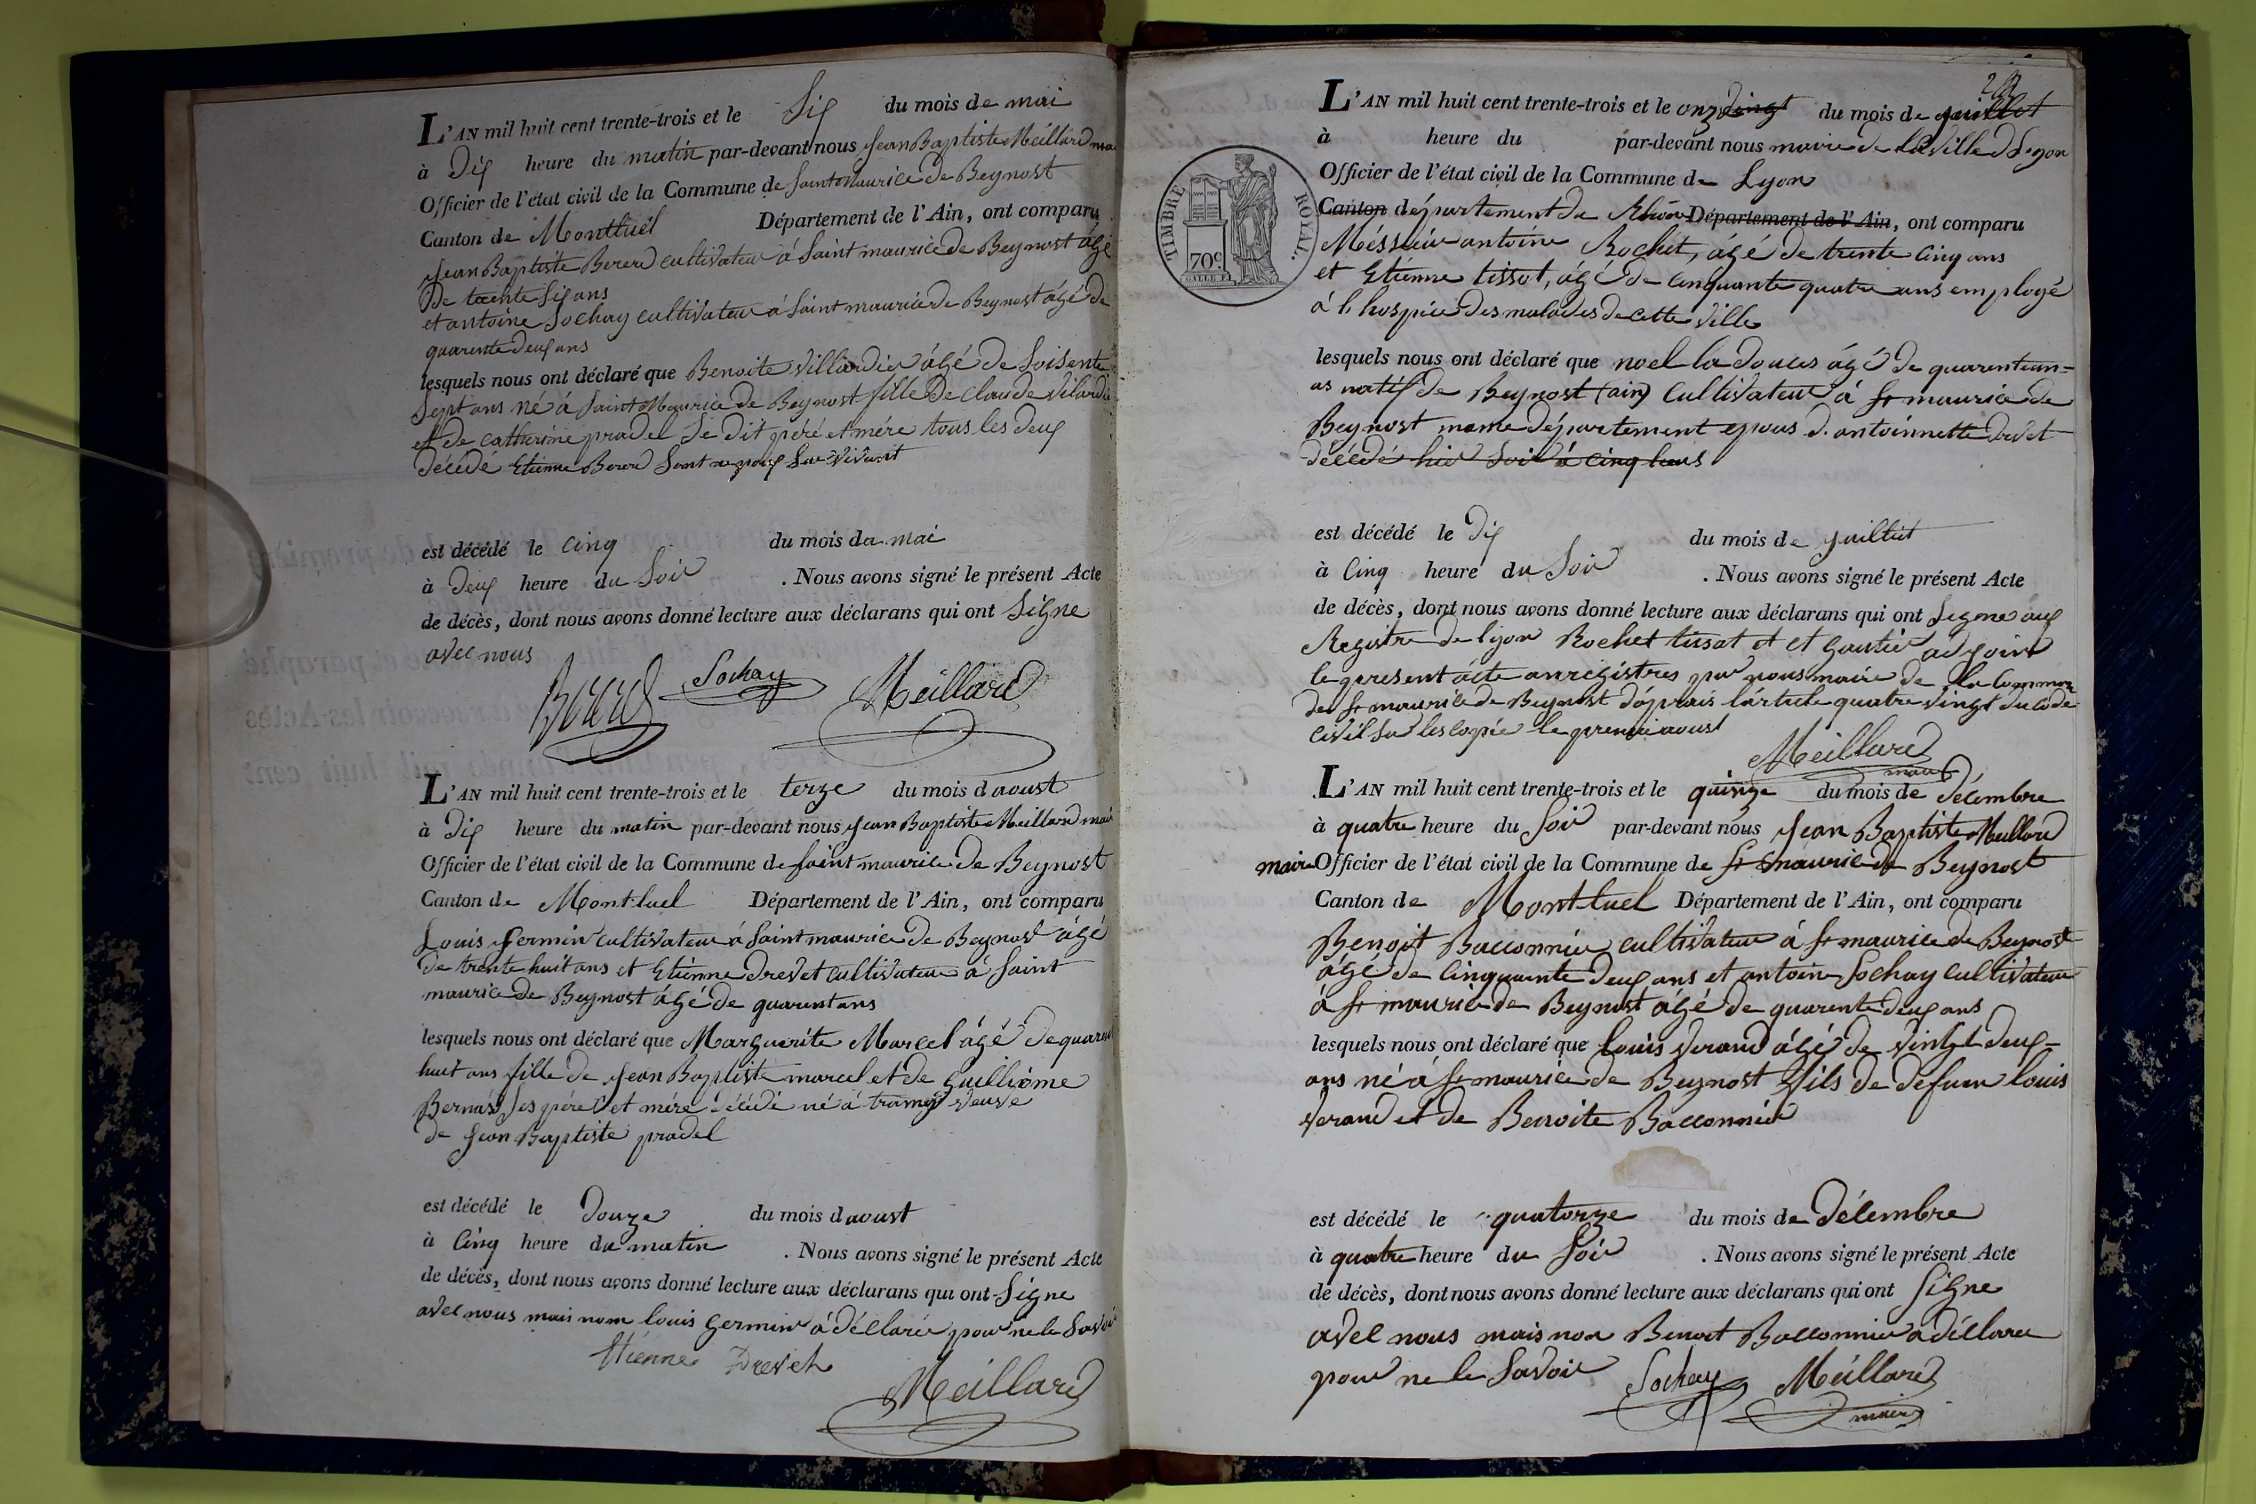 L'AN mil huit cent trente-trois et le Six du mois de mai
à Dix heure du matin par-devant nous Jean Baptiste Meillard
Officier de l'état civil de la Commune de Saint Maurice de Beynost
Canton de Montluel Département de l'Ain, ont comparu
Jean Baptiste Bererd cultivateur á Saint maurice de Beynost ágé
De trente Six ans
et antoine Sochay cultivateur á Saint maurice de Beynost ágé de
quarente deux ans
lesquels nous ont déclaré que Benoite Villardier ágé de Soisente
Sept ans né á Saint Maurice de Beynost fille De Claude Vilardie
et de catherine pradel Se dit péré et mére tous les deux
décédé Etienne Bererd Sont epoux Survivant
est décédé le Cinq du mois de mai
à Deux heure du Soir . Nous avons signé le présent Acte
de décès, dont nous avons donné lecture aux déclarans qui ont Signe
avec nous
Berard Sochay Meillard
L'AN mil huit cent trente-trois et le terze du mois d aoust
à Dix heure du matin par-devant nous Jean Baptiste Meillard mair
Officier de l'état civil de la Commune de Saint maurice de Beynost
Canton de Mont-luel Département de l'Ain, ont comparu
Louis Germin cultivateur á Saint maurice de Beynost ágé
de trente huit ans et Etienne Drevet cultivateur á Saint
maurice de Beynost ágé de quarent ans
lesquels nous ont déclaré que Marguerite Marcel ágé de quarent
huit ans fille de Jean Baptiste marcel et de Guillieme
Bernard Ses péré et mére décédé né á tramoy veuve
de Jean Baptiste pradel
est décédé le Douze du mois d aoust
à Cinq heure du matin . Nous avons signé le présent Acte
de décès, dont nous avons donné lecture aux déclarans qui ont Signe
avec nous mais nom louis Germin á déclarér pour ne le Savoir
Etienne Drevet
Meillard
L'AN mil huit cent trente-trois et le onze vingt du mois de juillet
à heure du par-devant nous maire de la Ville de Lyon
Officier de l'état civil de la Commune de Lyon
Canton département du Rhône Département de l'Ain, ont comparu
TIMBRE ROYAL.
70c
Méssieur antoine Rochet, agé de trente Cinq ans
et Etienne tissot, ágé de Cinquante quatre ans employé
á l hospice des malades de cette ville
lesquels nous ont déclaré que noel la douces ágé de quarent un=
as natif de Beynost (ain) Cultivateur á St maurice de
Beynost meme département epous d. antoinnette Drevet
décédé hier Soir á cinq heurs
est décédé le Dix du mois de juilliet
à Cinq heure du Soir . Nous avons signé le présent Acte
de décès, dont nous avons donné lecture aux déclarans qui ont Signe aux
Registre de lyon Rochet tissot et et Gautier adjoint
le present ácte enregistres par nous maire de la Commune
de St maurice de Beynost dáprais lárticle quatre vingt du code
Civil Sur les copié le premier aoust
Meillard
maire
L'AN mil huit cent trente-trois et le quinze du mois de Décembre
à quatre heure du Soir par-devant nous Jean Baptiste Meillard
maire Officier de l'état civil de la Commune de St maurice de Beynost
Canton de Mont-luel Département de l'Ain, ont comparu
Benoit Bacconnier cultivateur á St maurice de Beynost
ágé de Cinquante deux ans et antoine Sochay cultivateur
á St maurice de Beynost ágé de quarente deux ans
lesquels nous ont déclaré que louis Verand ágé de vingt deux=
ans né á St maurice de Beynost fils de defun louis
Verand et de Benoite Bacconnier
est décédé le quatorze du mois de Décembre
à quatre heure du Soir . Nous avons signé le présent Acte
de décès, dont nous avons donné lecture aux déclarans qui ont Signe
avec nous mais non Benoit Bacconnier á déclarer
pour ne le Savoir Sochay Meillard
maire